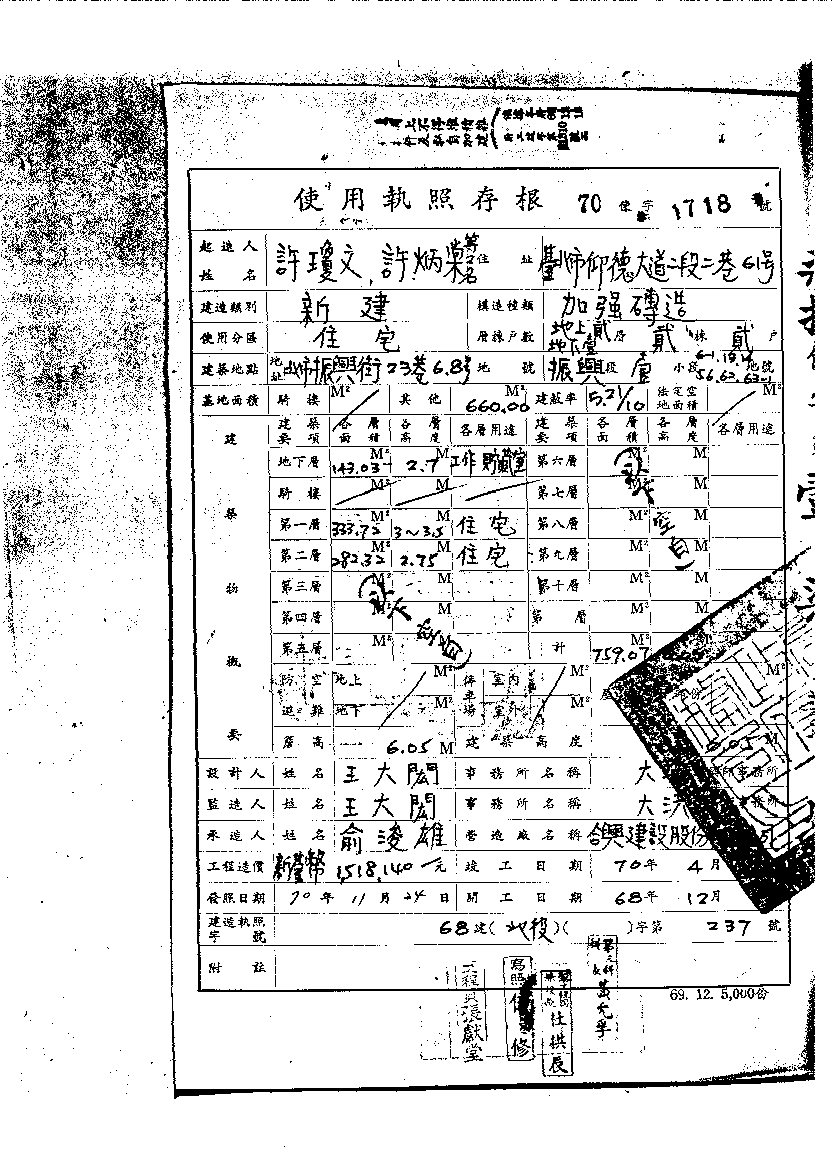 使用執照存根 70 使字 1718 號
起造人姓名 許瓊文、許炳棠等2名 住址 臺北市仰德大道二段二巷61號
建造類別 新建 構造種類 加强磚造
使用分區 住宅 層棟戶數 地上貳層 地下壹 貳棟 貳戶
建築地點 地址 北市振興街23巷6.8号 地號 振興段壹小段 56.62.63-1 地號
基地面積 騎樓 M² 其他 660.00 M² 建蔽率 5.21/10 法定空地面積 M²
建築物概要
建築要項 各層面積 各層高度 各層用途 建築要項 各層面積 各層高度 各層用途
地下層 143.03 M² 2.7 M 工作貯藏室 第六層 M² M
騎樓 M² M 第七層 M² M
第一層 333.72 M² 3~3.5 M 住宅 第八層 M² M
第二層 282.32 M² 2.75 M 住宅 第九層 M² M
第三層 M² M 第十層 M² M
第四層 M² M 第 層 M² M
第五層 M² M 計 759.07 M²
(以下空白)
(以下空白)
防空避難 地上 M² 停車場 室內 M² M²
地下 M² 室外 M² M²
簷高 6.05 M 建築高度 6.05 M
設計人 姓名 王大閎 事務所名稱 大 師事務所
監造人 姓名 王大閎 事務所名稱 大洪 事務所
承造人 姓名 俞浚雄 營造廠名稱 合興建設股份
工程造價 新臺幣 1,518,140 元 竣工日期 70年 4月
發照日期 70年 11月 24日 開工日期 68年 12月
建造執照字號 68建(北投)( )字第 237 號
附註
69. 12. 5,000份
工程員張獻堂
寫照
修
杜拱辰
第三科
科長
黃